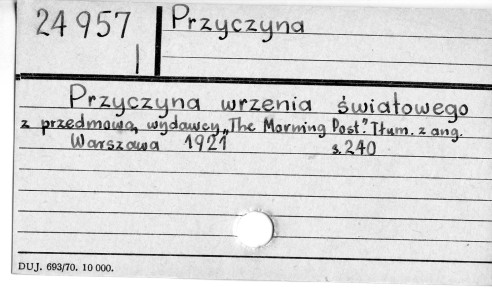 24957
I
Przyczyna
Przyczyna wrzenia światowego
z przedmową wydawcy „The Morning Post". Tłum. z ang.
Warszawa 1921 s. 240
DUJ. 693/70. 10 000.